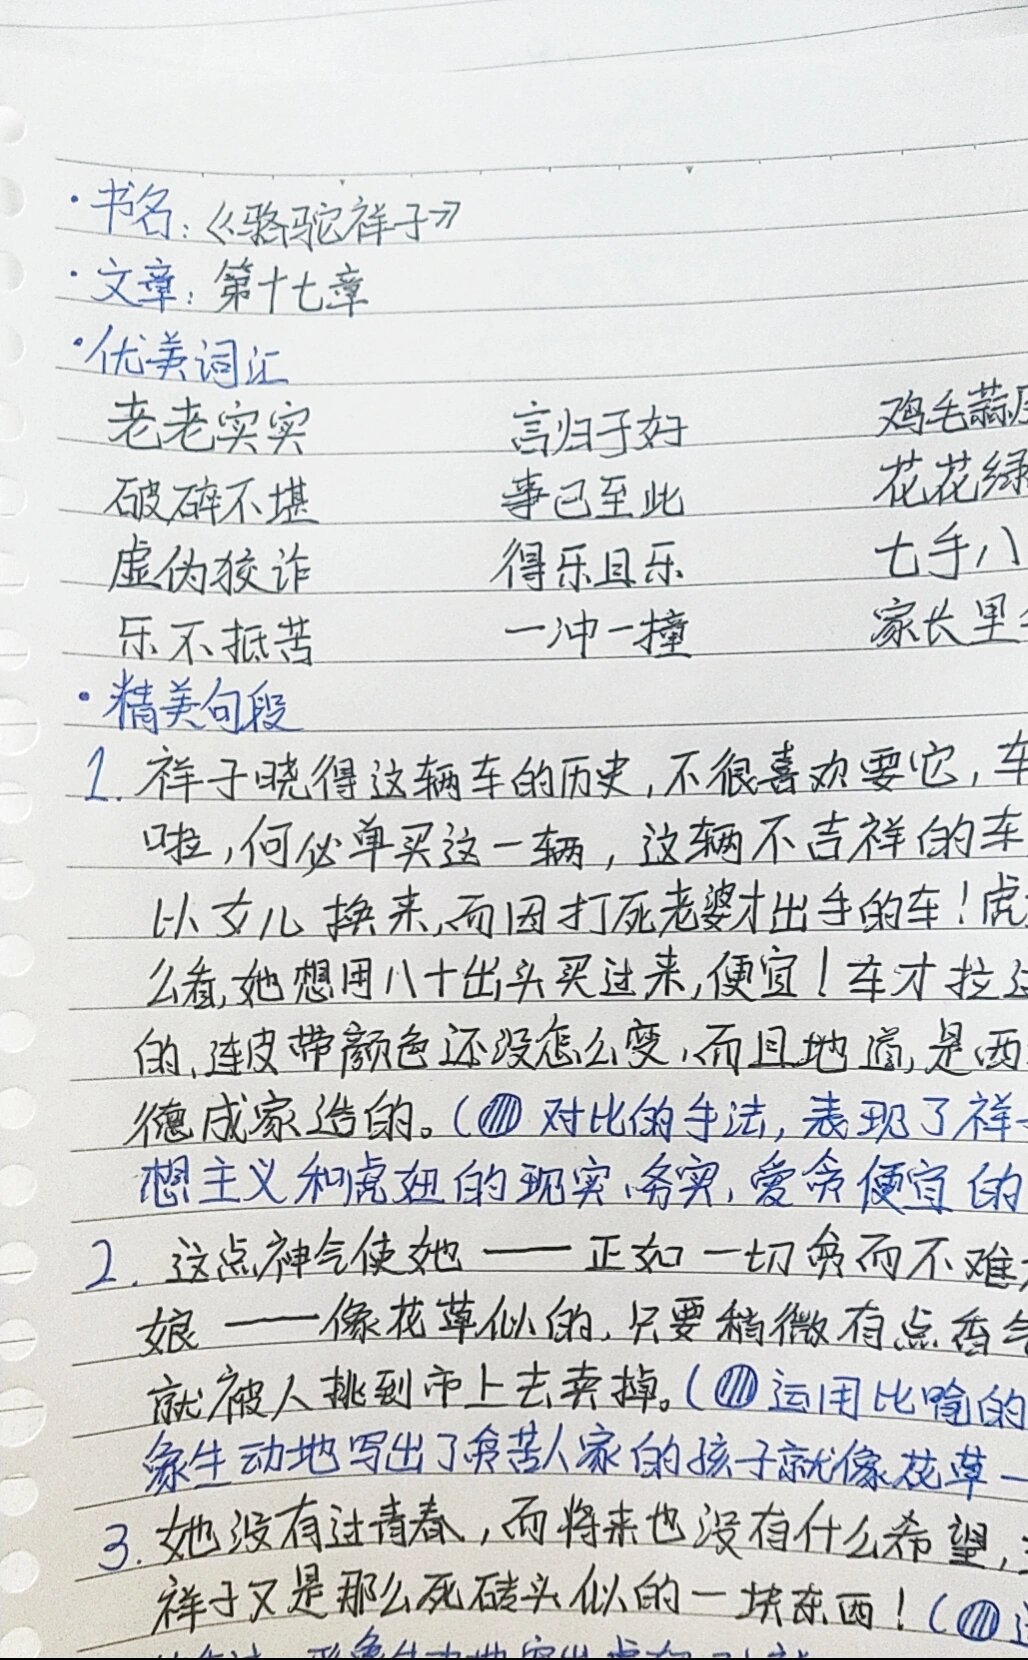 ·书名:《骆驼祥子》
·文章:第十七章
·优美词汇
老老实实 言归于好 鸡毛蒜
破碎不堪 事已至此 花花绿
虚伪狡诈 得乐且乐 七手八
乐不抵苦 一冲一撞 家长里
·精美句段
1. 祥子晓得这辆车的历史,不很喜欢要它,车
啦,何必单买这一辆,这辆不吉祥的车
以女儿换来,而因打死老婆才出手的车!虎
么看,她想用八十出头买过来,便宜!车才拉过
的,连皮带颜色还没怎么变,而且地道,是西
德成家造的。(对比的手法,表现了祥子
想主义和虎妞的现实、务实,爱贪便宜的
2. 这点神气使她——正如一切贫而不难
娘——像花草似的,只要稍微有点香气
就被人挑到市上去卖掉。(运用比喻的
象生动地写出了贫苦人家的孩子就像花草一
3. 她没有过青春,而将来也没有什么希望,
祥子又是那么死砖头似的一块东西!(